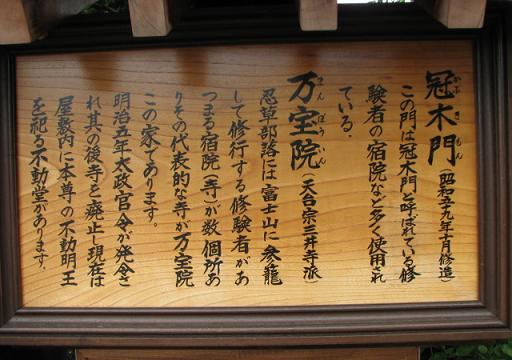 冠木門（昭和五九年十月修造）
この門は冠木門と呼ばれている修
験者の宿院など多く使用され
ている。
万宝院（天台宗三井寺派）
忍草部落には富士山に参籠
して修行する修験者があ
つまる宿院（寺）が数個所あ
りその代表的な寺が万宝院
この家であります。
明治五年大政官令が発令さ
れ其の後寺を廃止し現在は
屋敷内に本尊の不動明王
を祀る不動堂があります。